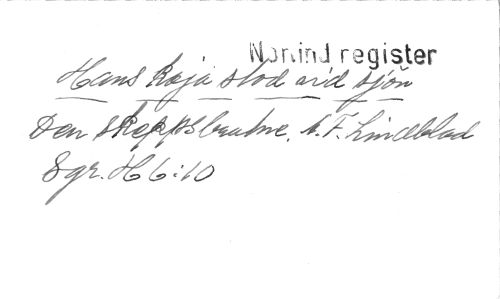 Norlind register
Hans koja stod vid sjön
Den skeppsbrutne. A.F. Lindblad
Sgr. H 6:10